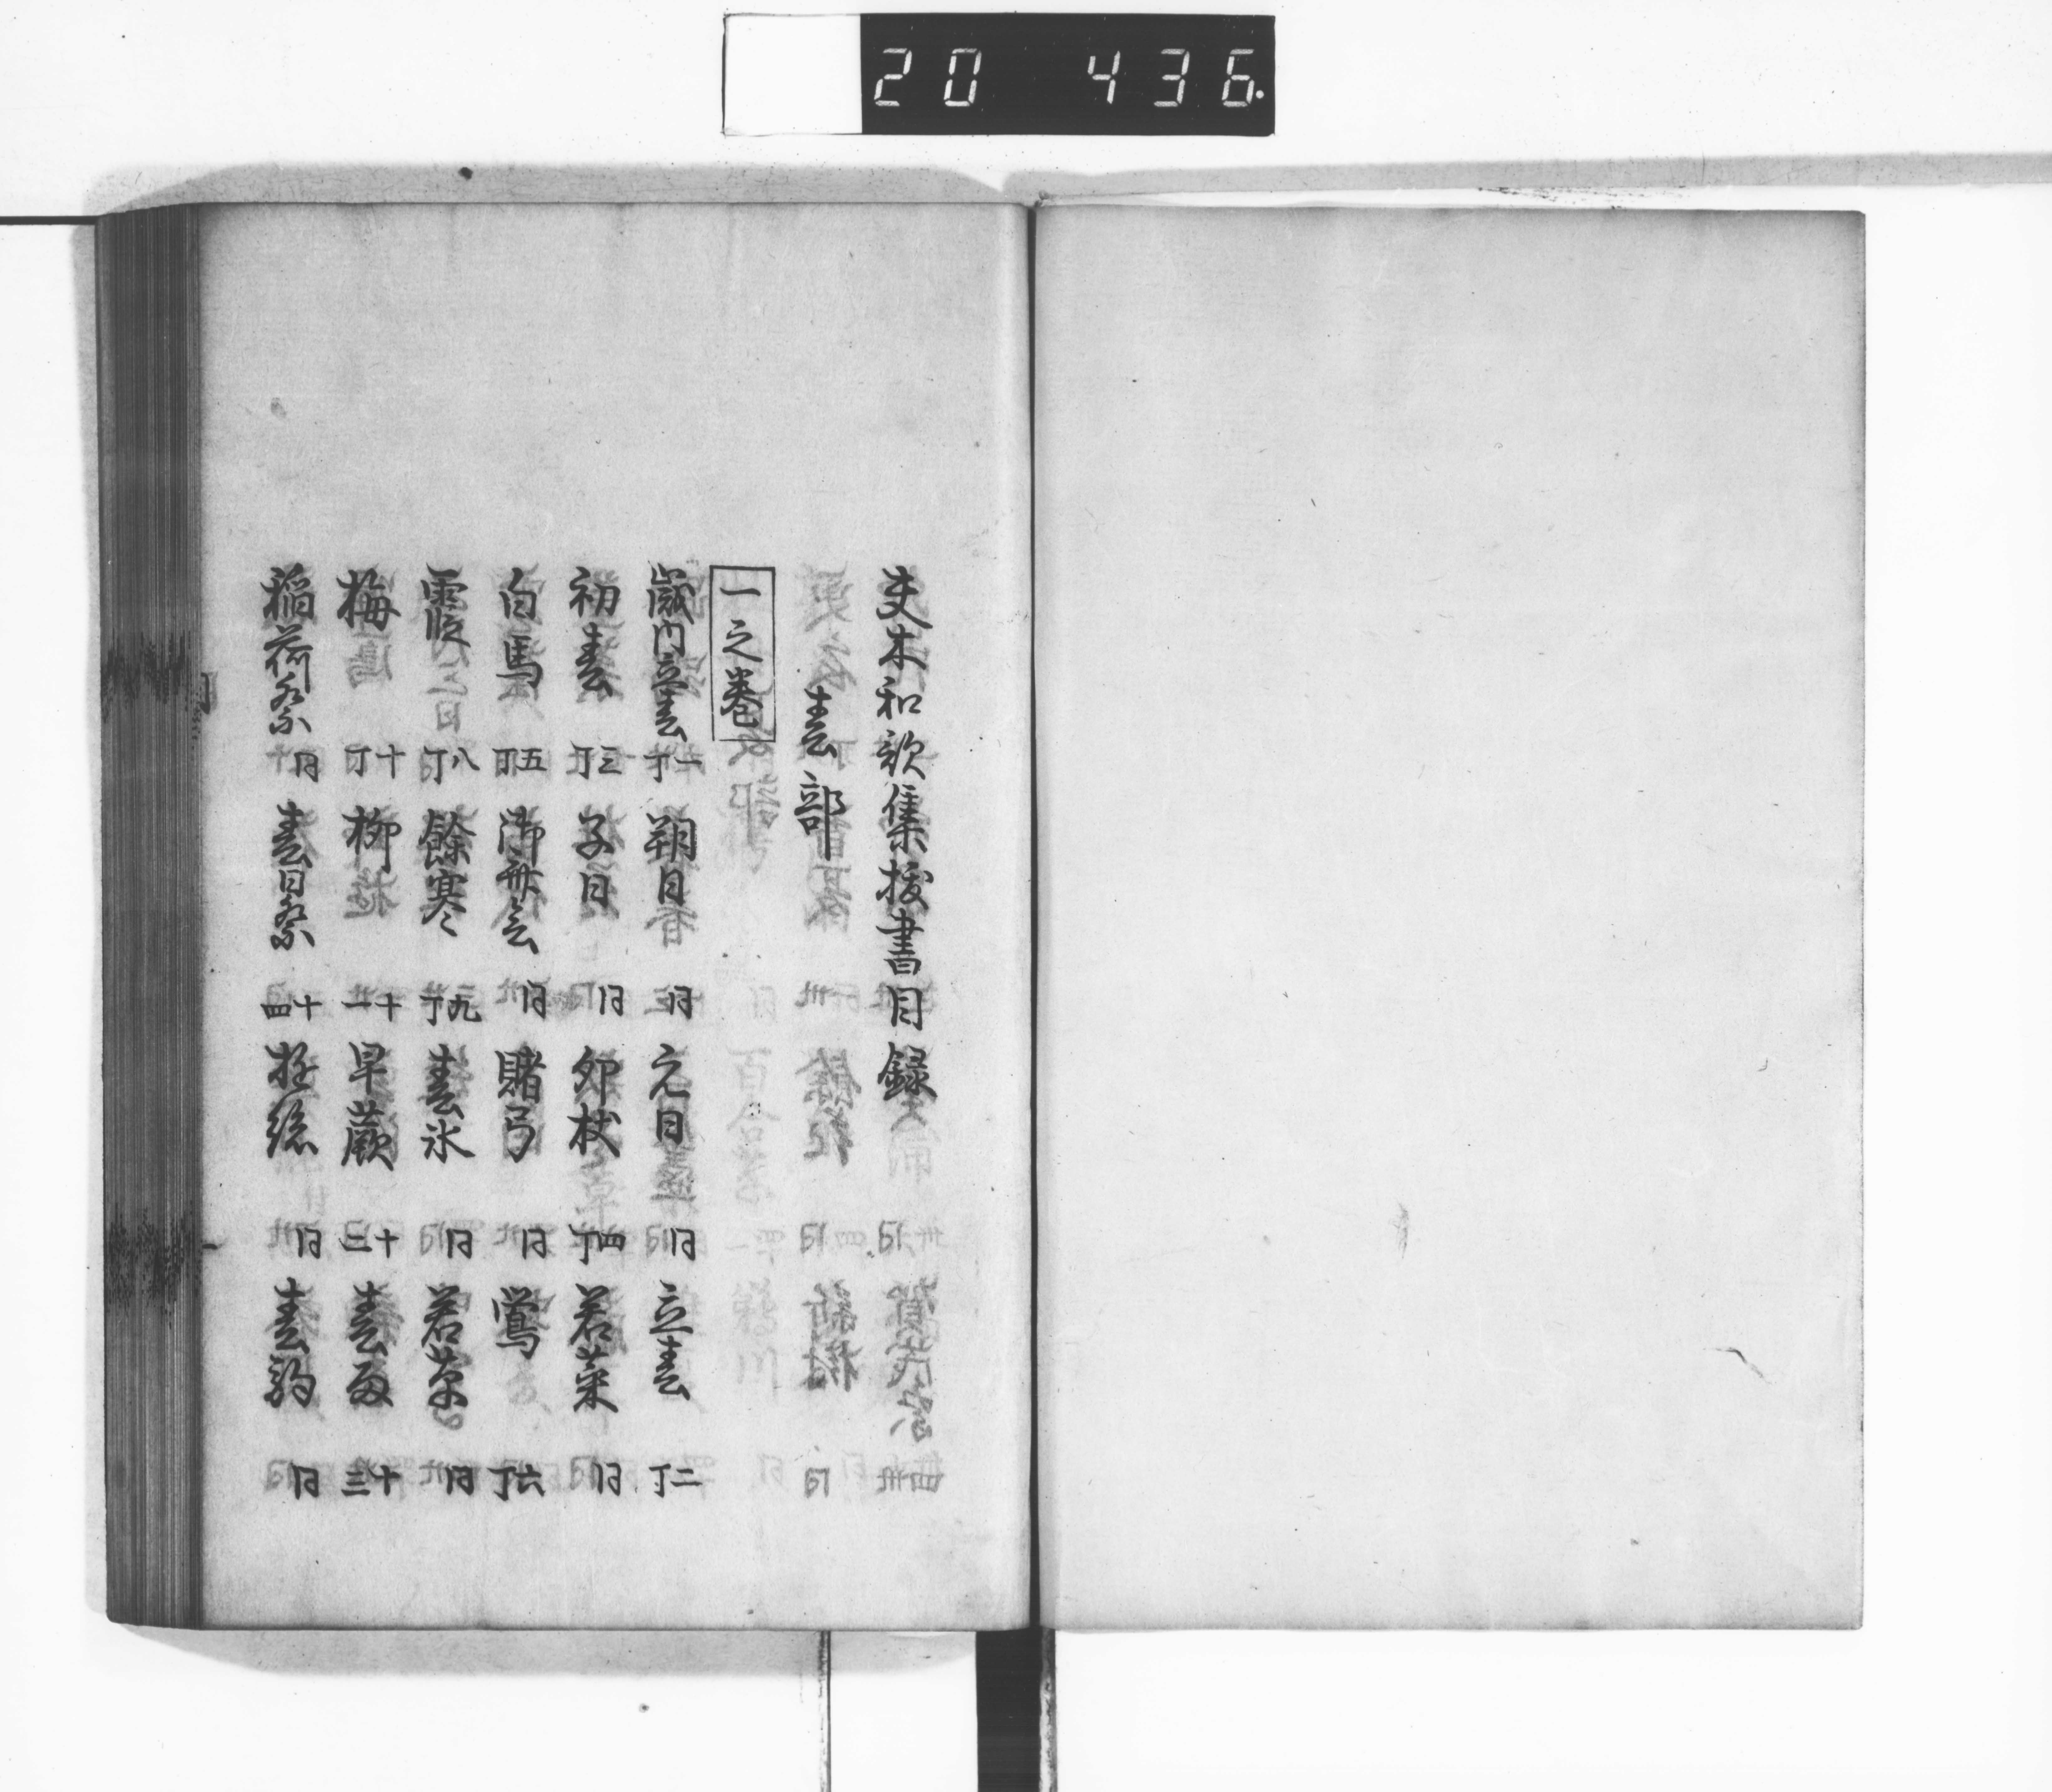 20 436
夫木和歌集抜書目録
春部
一之巻
歳内立春 一丁 朔日 同 元日 同 立春 二丁
初春 三丁 子日 同 卯杖 四丁 若菜 同
白馬 五丁 御斎会 同 賭弓 同 鶯 六丁
霞 八丁 餘寒 九丁 春氷 同 若草 同
梅 十丁 柳 十一 早蕨 十三 春雨 十三
稲荷祭 同 春日祭 十四 遊絲 同 春駒 同